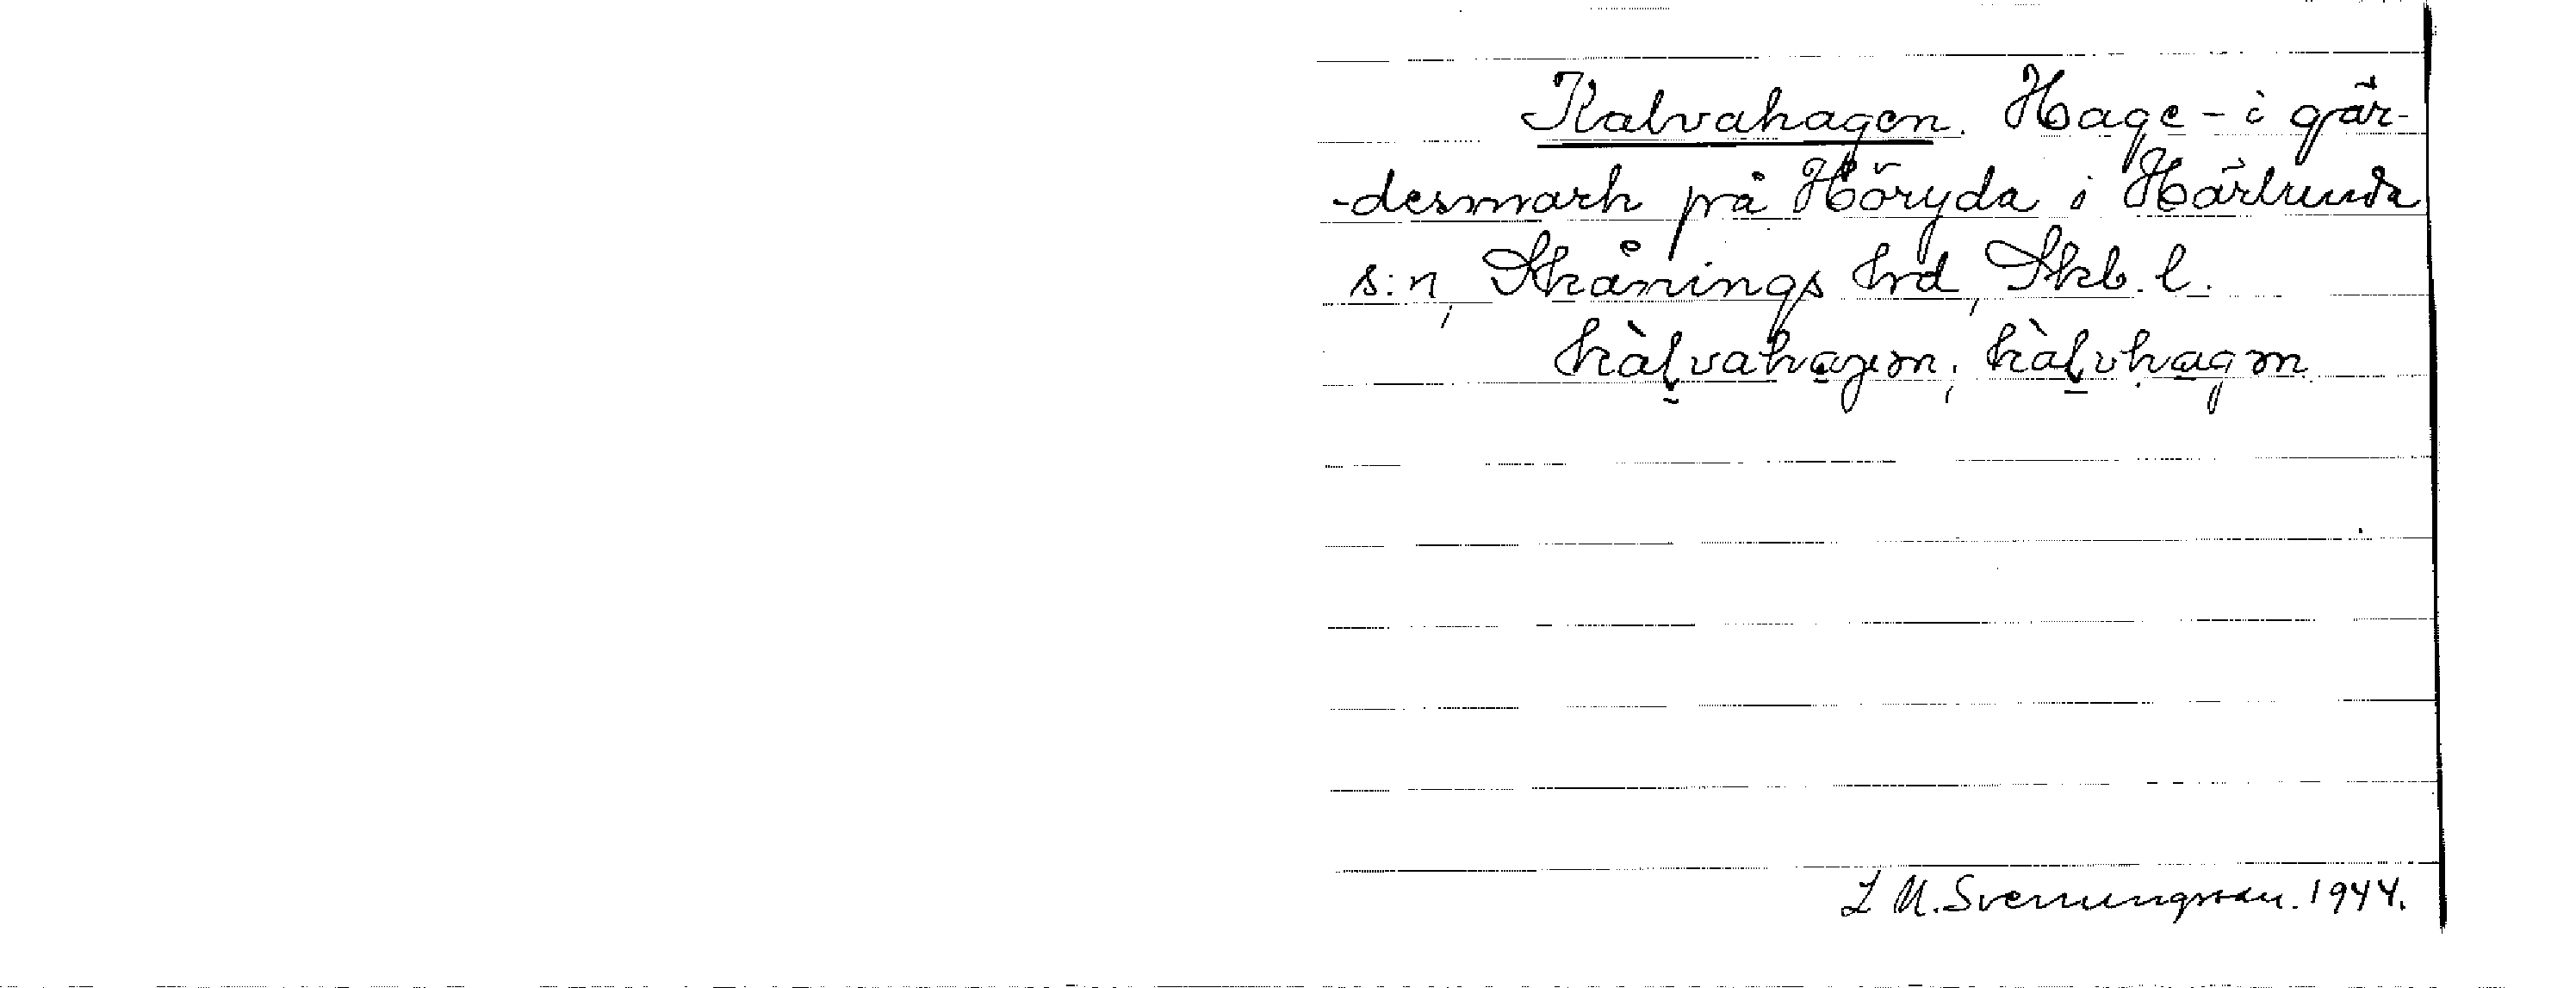 Kalvahagen. Hage - i går-
-desmark på Höryda i Härlunda
s:n, Skånings hrd, Skb. l.
kàlvahagen; kàlvhagen
L M. Svenungsson. 1944.